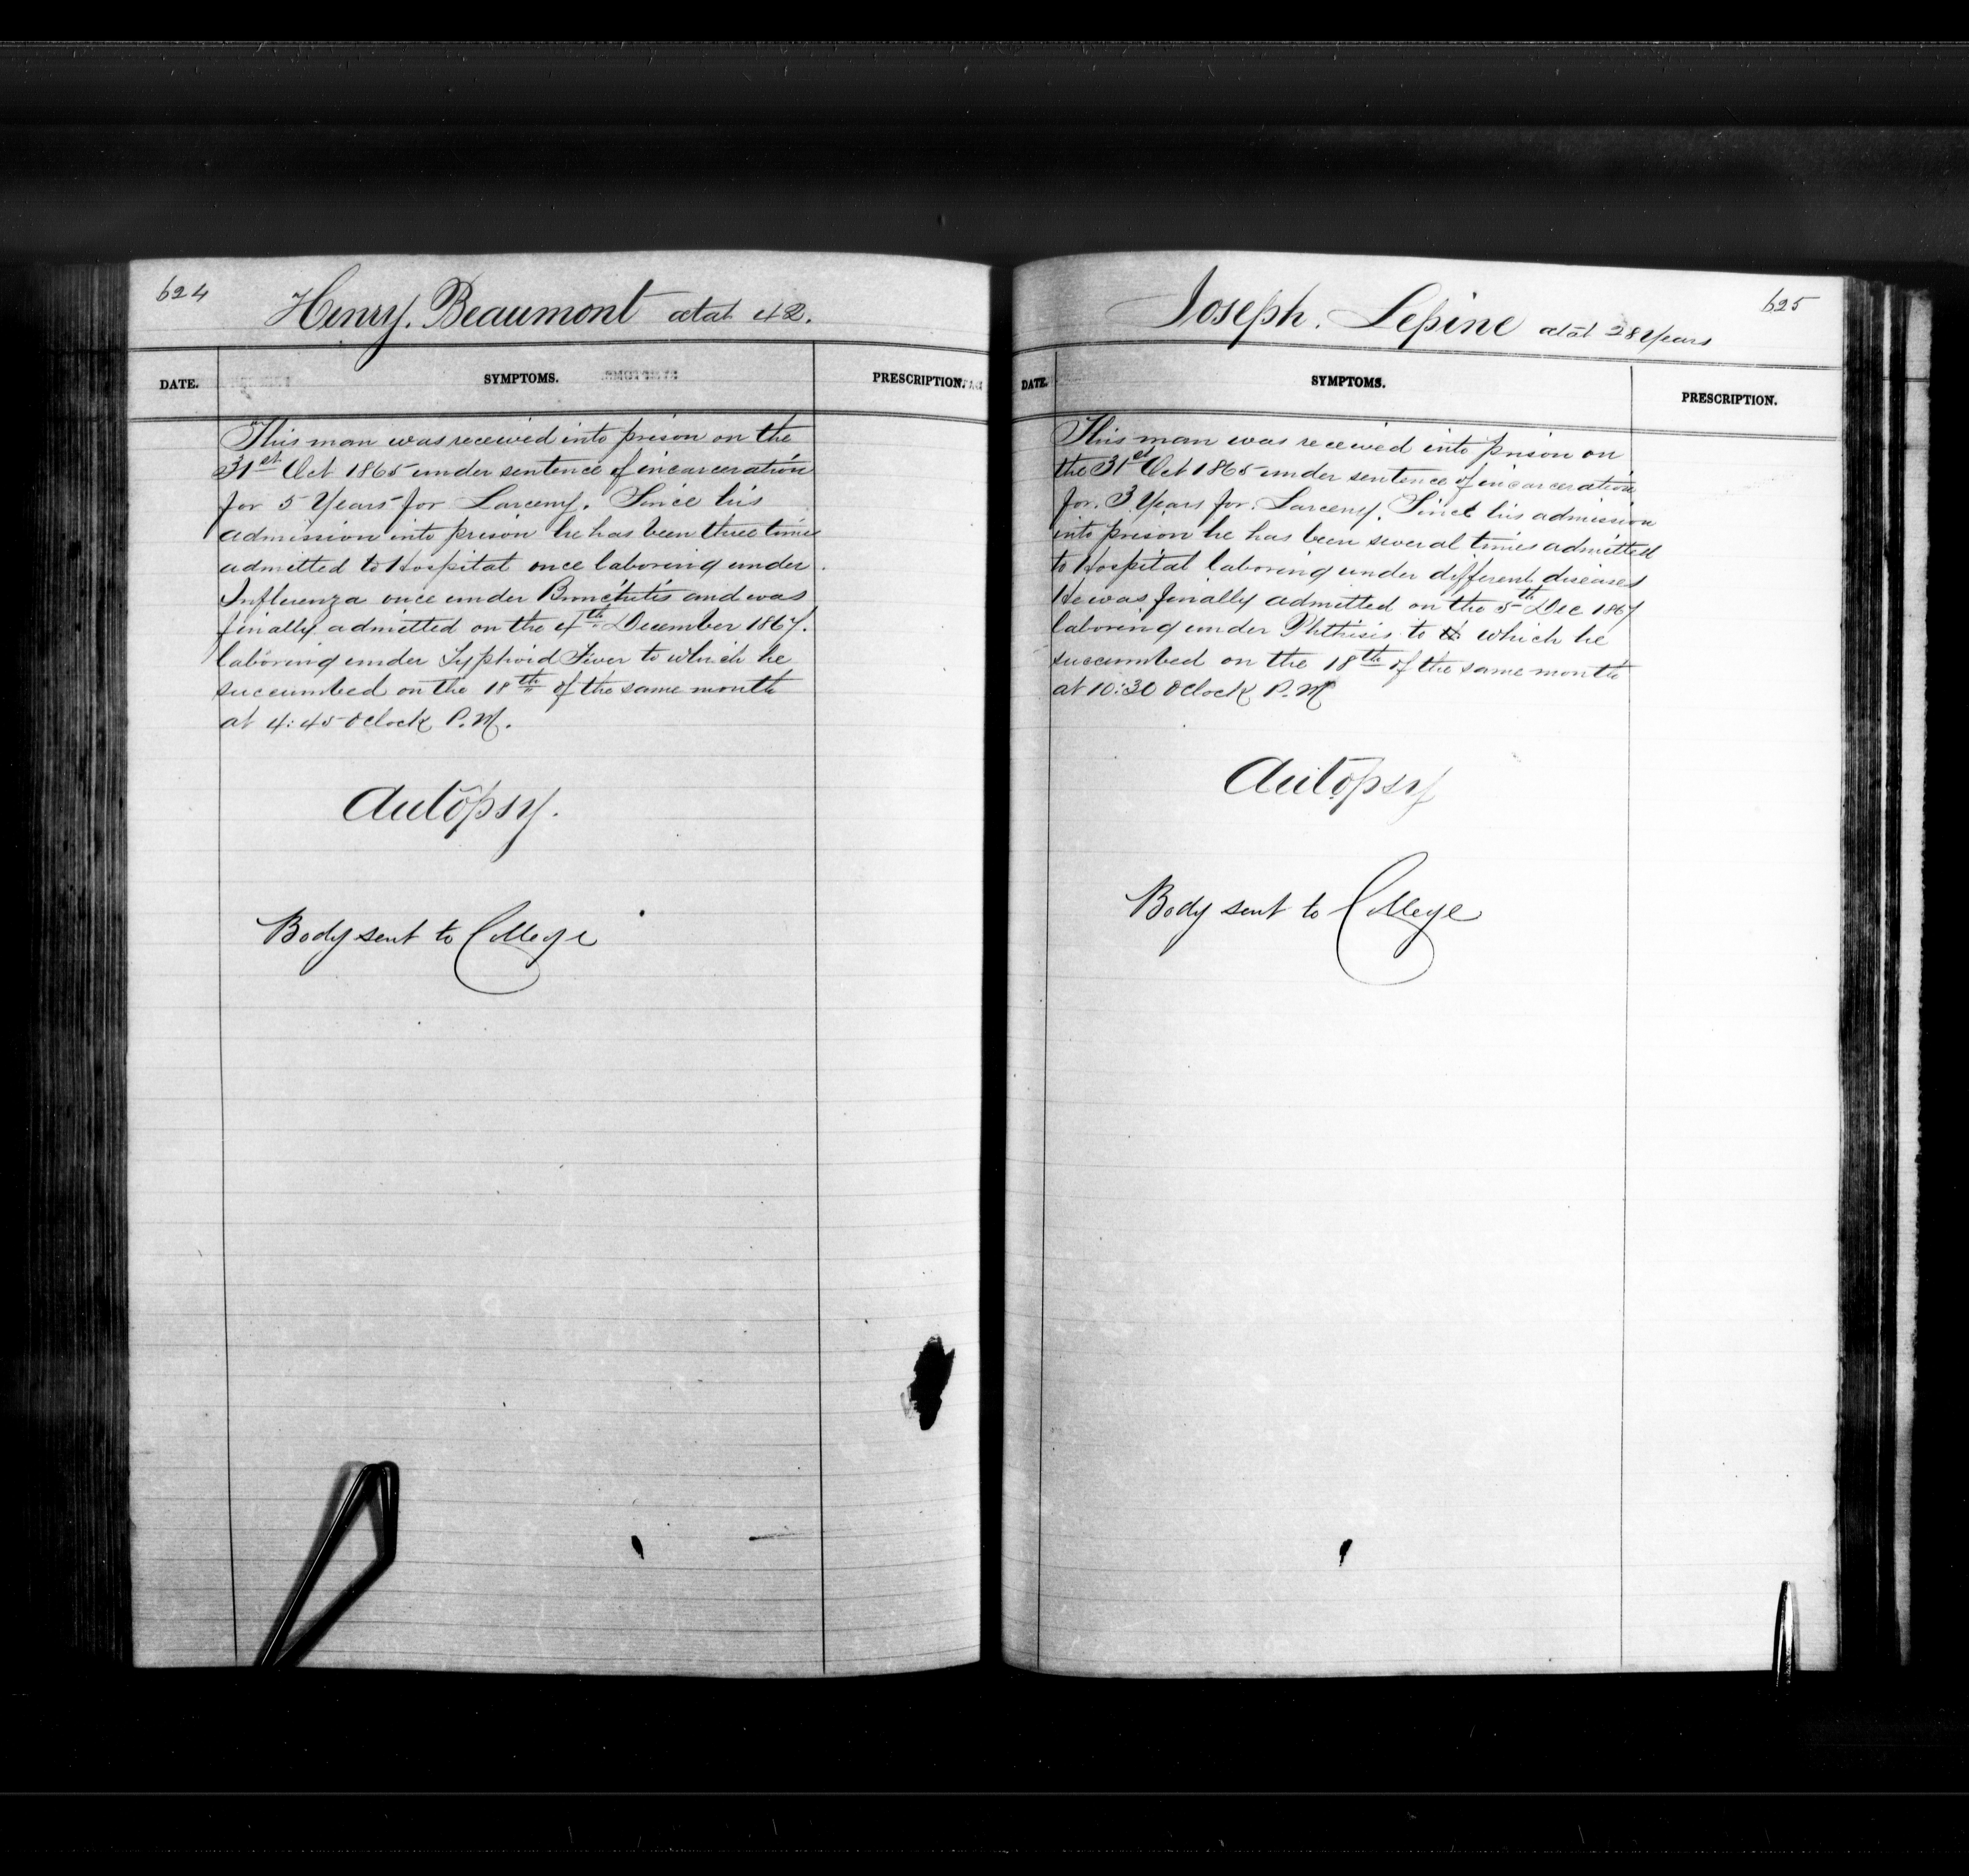 624
Henry. Beaumont aetat 42.
DATE. SYMPTOMS. PRESCRIPTION.
This man was received into prison on the
31st Oct 1865 under sentence of incarceration
for 5 Years for Larceny. Since his
admission into prison he has been three times
admitted to Hospital once laboring under
Influenza once under Bronchitis and was
finally admitted on the 4th December 1867.
laboring under Typhoid Fever to which he
succumbed on the 18th of the same month
at 4:45 O'clock P.M.
Autopsy.
Body sent to College
625
Joseph. Lepine aetat 28 Years
DATE. SYMPTOMS. PRESCRIPTION.
This man was received into prison on
the 31st Oct 1865 under sentence of incarceration
for. 3 Years for. Larceny. Since his admission
into prison he has been several times admitted
to Hospital laboring under different diseases
He was finally admitted on the 5th Dec 1867
laboring under Phthisis to which he
succumbed on the 18th of the same month
at 10:30 O'clock P.M
Autopsy
Body sent to College